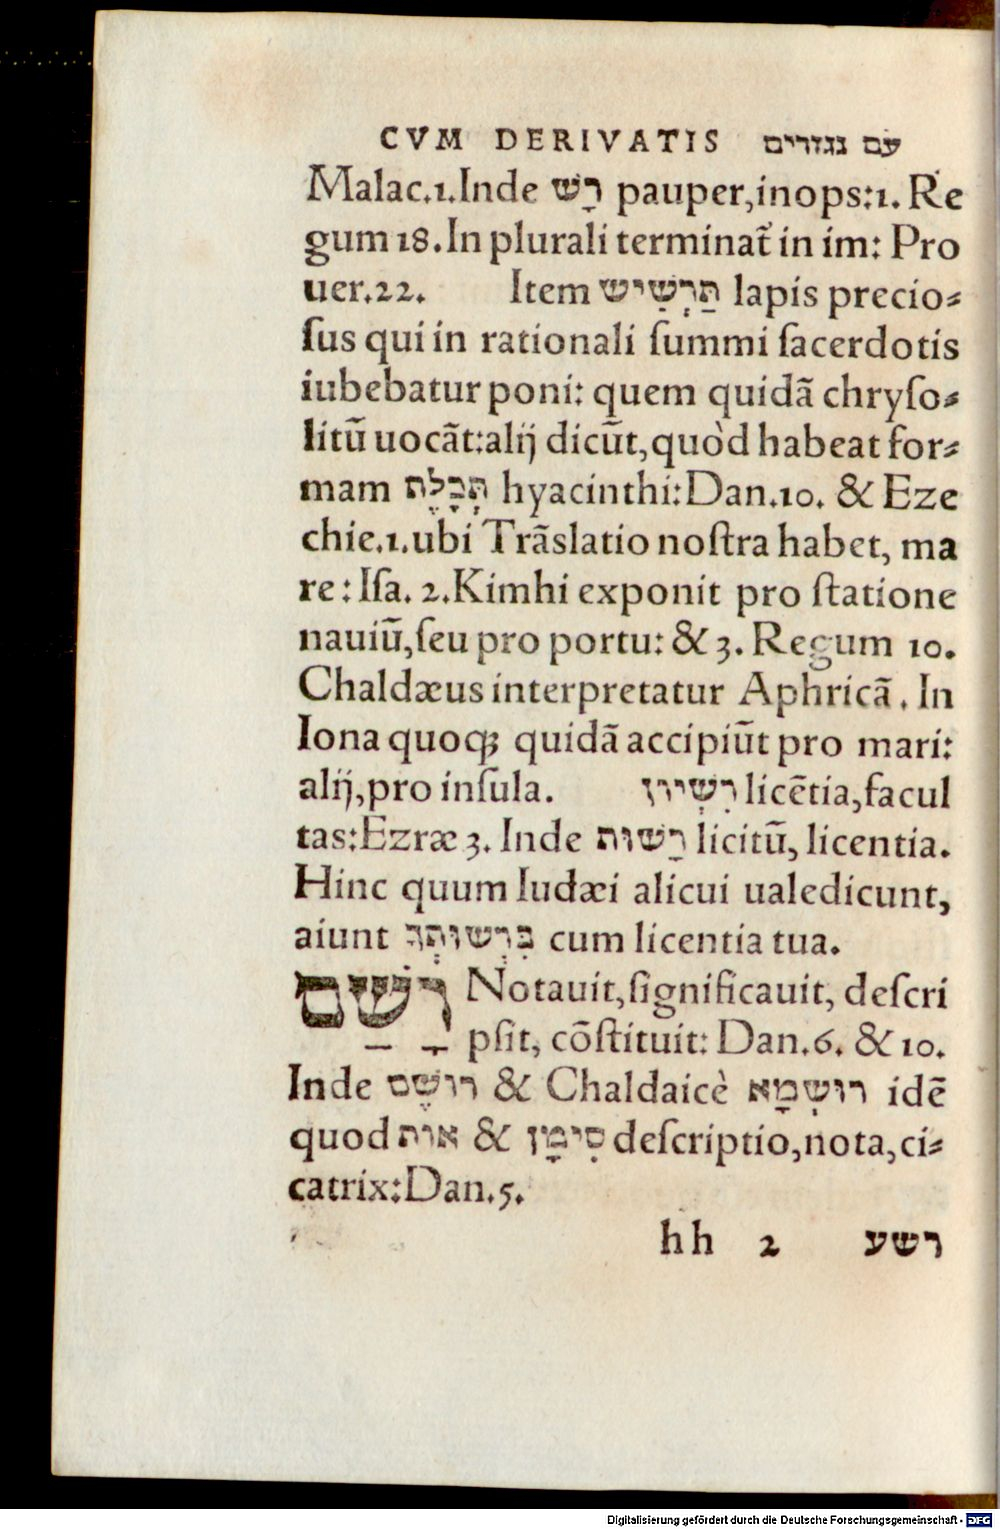 CVM DERIVATIS עם נגזרים
Malac.1.Inde רָשׁ pauper,inops:1. Re
gum 18.In plurali terminat᷑ in im: Pro
uer.22. Item תַּרְשִׁישׁ lapis precio⸗
ſus qui in rationali ſummi ſacerdotis
iubebatur poni: quem quidã chryſo⸗
litũ uocãt:alij dicũt,quòd habeat for⸗
mam תְּכֵלֶת hyacinthi:Dan.10. & Eze
chie.1.ubi Trãslatio noſtra habet, ma
re: Iſa. 2.Kimhi exponit pro ſtatione
nauiũ,ſeu pro portu: & 3. Regum 10.
Chaldæus interpretatur Aphricã. In
Iona quoqꝫ quidã accipiũt pro mari:
alij,pro inſula. רִשְׁיוֹן licẽtia,facul
tas:Ezræ 3. Inde רַשׁוּת licitũ, licentia.
Hinc quum Iudæi alicui ualedicunt,
aiunt בִּרְשׁוּתְךָ cum licentia tua.
רָשַׁם Notauit,ſignificauit, deſcri
pſit, cõſtituit: Dan.6. & 10.
Inde רוֹשֶׁם & Chaldaicè רוּשְׁמָא idẽ
quod אות & סִימָן deſcriptio,nota,ci⸗
catrix:Dan.5.
hh 2 רשע
Digitalisierung gefördert durch die Deutsche Forschungsgemeinschaft - DFG